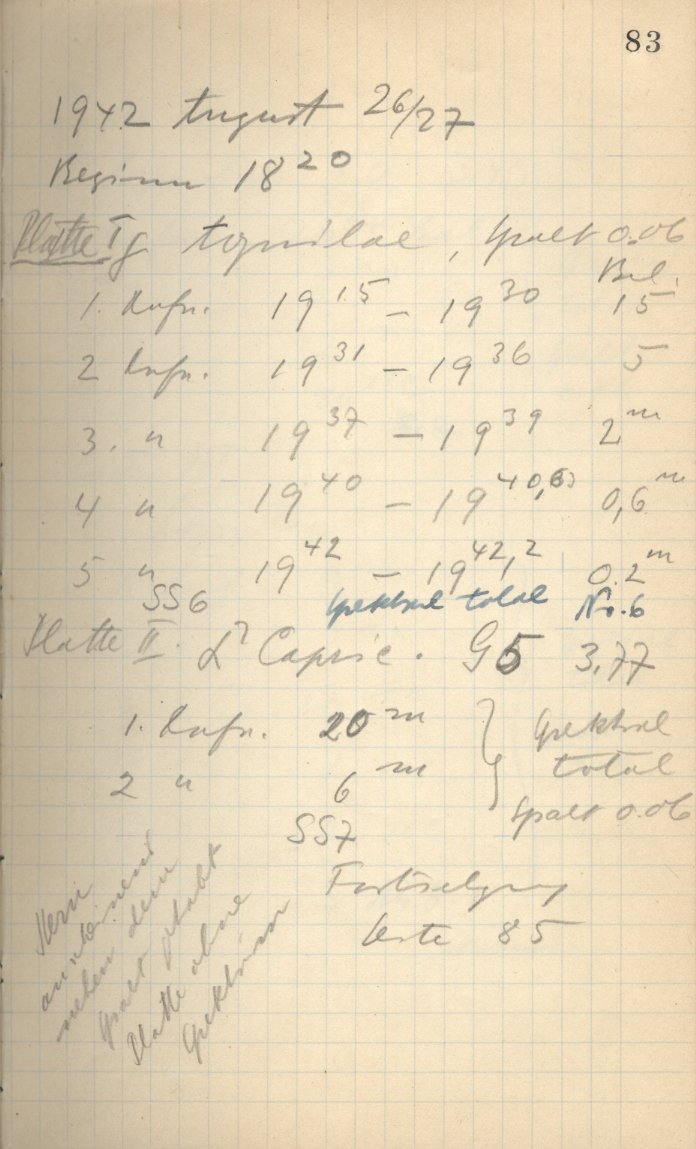 83
1942 August 26/27
Beginn 18 20
Platte I γ Aquilae, Spalt 0.06
Bel.
1. Aufn. 19 15 – 19 30 15
2 Aufn. 19 31 – 19 36 5
3. " 19 37 – 19 39 2 m
4 " 19 40 – 19 40,6 0,6 m
5 " 19 42 – 19 42,2 0.2 m
SS6 Spektral total No. 6
Platte II. α² Capric. G5 3,77
1. Aufn. 20 m } Spektral
2 " 6 m total
Spalt 0.06
SS7
Fortsetzung
Seite 85
Stern
anscheinend
neben dem
Spalt gehabt
Platte ohne
Spektrum